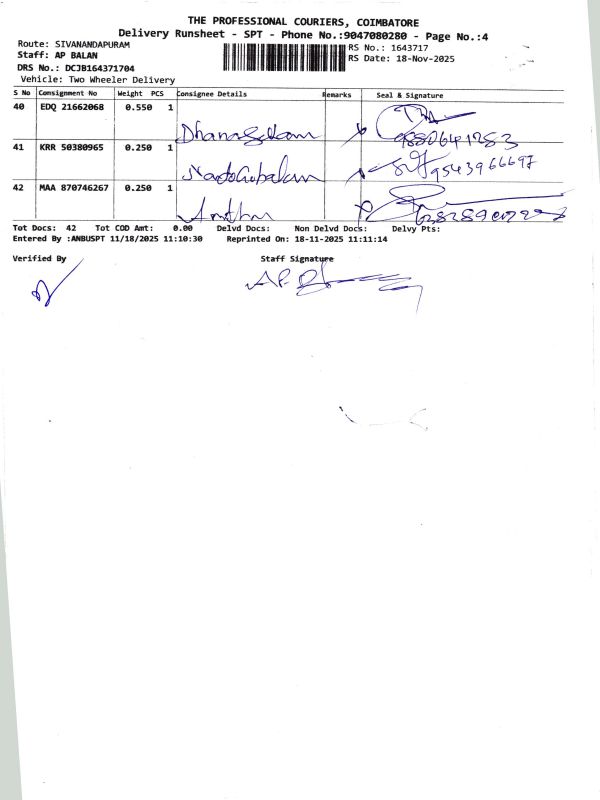 THE PROFESSIONAL COURIERS, COIMBATORE
Delivery Runsheet - SPT - Phone No.:9047080280 - Page No.:4
Route: SIVANANDAPURAM
RS No.: 1643717
Staff: AP BALAN
RS Date: 18-Nov-2025
DRS No.: DCJB164371704
Vehicle: Two Wheeler Delivery
S No Consignment No Weight PCS Consignee Details Remarks Seal & Signature
40 EDQ 21662068 0.550 1
41 KRR 50380965 0.250 1 9543966697
42 MAA 870746267 0.250 1
Tot Docs: 42 Tot COD Amt: 0.00 Delvd Docs: Non Delvd Docs: Delvy Pts:
Entered By :ANBUSPT 11/18/2025 11:10:30 Reprinted On: 18-11-2025 11:11:14
Verified By Staff Signature